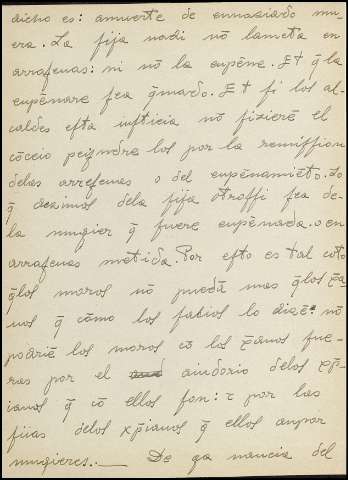 dicho es: amuerte de ennaziado mu-
era. La fija nadi nõ la meta en
arrafenas: ni nõ la enpẽne. Et q̃ la
enpẽnare fea q̃mado. Et fi los al-
caldes efta iufticia nõ fizierẽ el
cõceio peyndre los por la remiffion
delas arrefenas o del enpẽnamiẽto. Lo
q̃ dezimos dela fija otroffi fea de-
la mugier q̃ fuere enpẽnada. o en
arrafenas metida. Por efto es tal coto
q̃los moros nõ puedã mas q̃los xp̃a
nos q̃ cõmo los fabios lo dizẽ: nõ
podriẽ los moros cõ los xp̃anos fue-
ras por el aiudorio delos xp̃-
ianos q̃ cõ ellos fon: τ por las
fijas delos xp̃ianos q̃ ellos an por
mugieres. — De ga nancia del